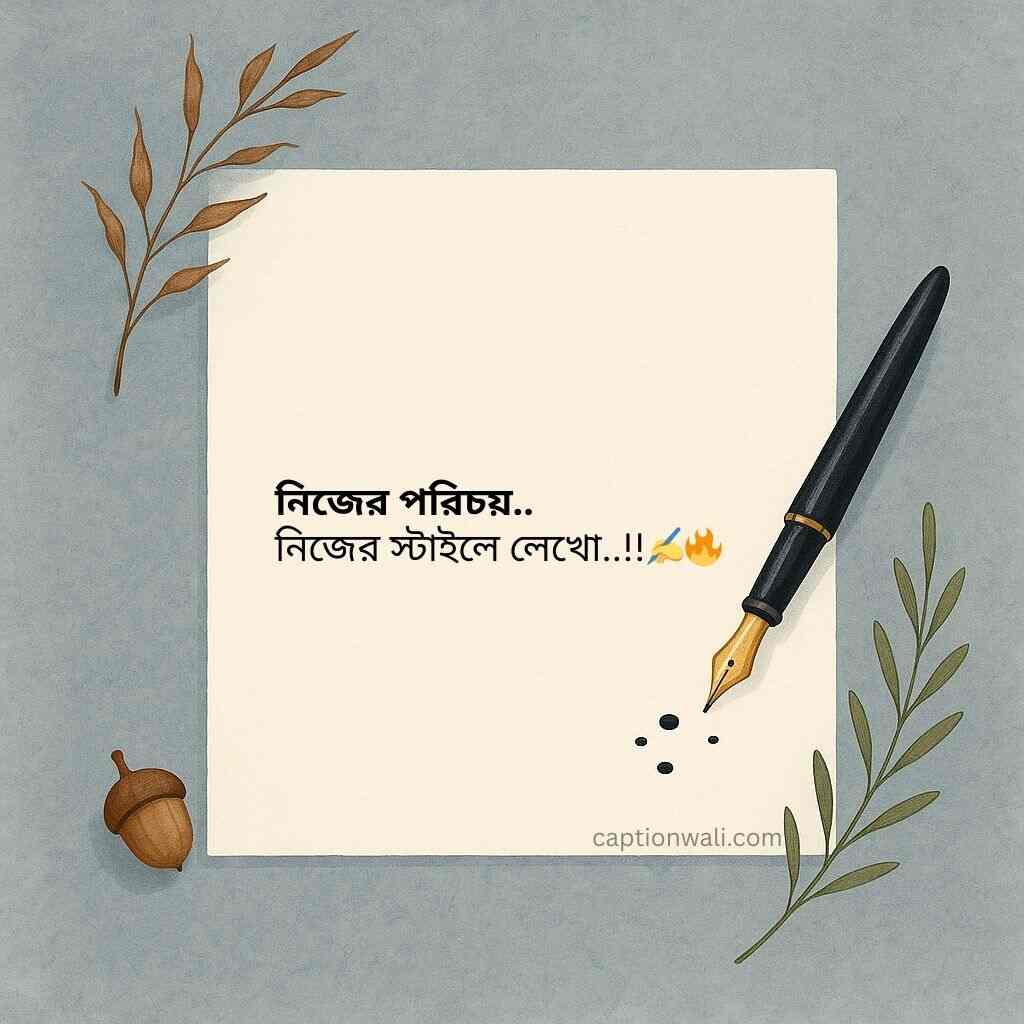 নিজের পরিচয়..
নিজের স্টাইলে লেখো..!!✍️🔥
captionwali.com